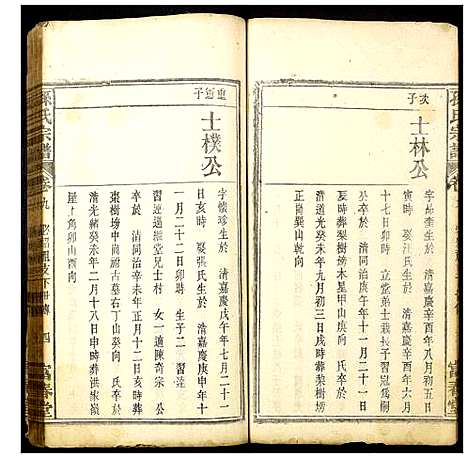 次子
士林公
字品奎生於　清嘉慶辛酉年八月初三日
寅時　娶汪氏生於　清嘉慶
十七日卯時　立堂弟士杖長子習冠爲嗣
公卒於　清同治庚午年十一月二十一日
寅時葬梨樹塝木星甲山庚向　氏卒於
清光緒癸未年九月初三日　時葬梨樹塝
正崗巽山乾向
孫氏宗譜
富春堂
孫氏宗譜
卷九
四
富春堂
連道子
士樸公
字懷珍生於　清嘉慶戊午年七月二十一
日亥時　娶張氏生於　清嘉慶庚申年十
一月二十二日卯時　生子二　習達
習連過繼堂兄士村　女一適陳奇宗　公
卒於　清同治辛未年正月十二日亥時葬
棗樹塝中崗祔古墓右丁山癸向　氏卒於
清光緒癸未年二月十八日申時葬洪家嶺
屋上角卯山酉向